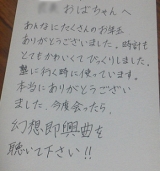 おばちゃんへ
あんなにたくさんのお年玉
ありがとうございました。時計も
とてもかわいくてびっくりしました。
塾に行く時に使っています。
本当にありがとうござい
ました。今度会ったら、
幻想即興曲を
聴いて下さい!!